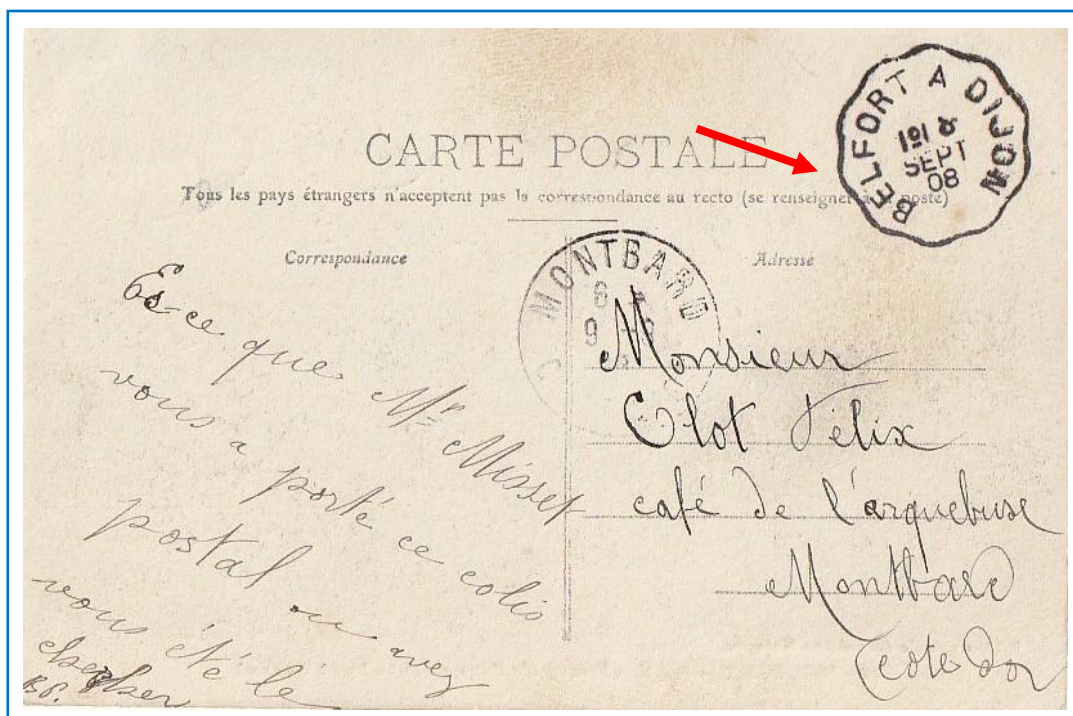 BELFORT A DIJON
SEPT
08
CARTE POSTALE
Tous les pays étrangers n'acceptent pas la correspondance au recto (se renseigner à la poste)
Correspondance
Adresse
MONTBARD
6
9
Es-ce que Mr Misset
vous a porté ce colis
postal ou avez
vous été le
chercher
Monsieur
Clot Félix
café de l'arquebuse
Montbard
(cote d'or